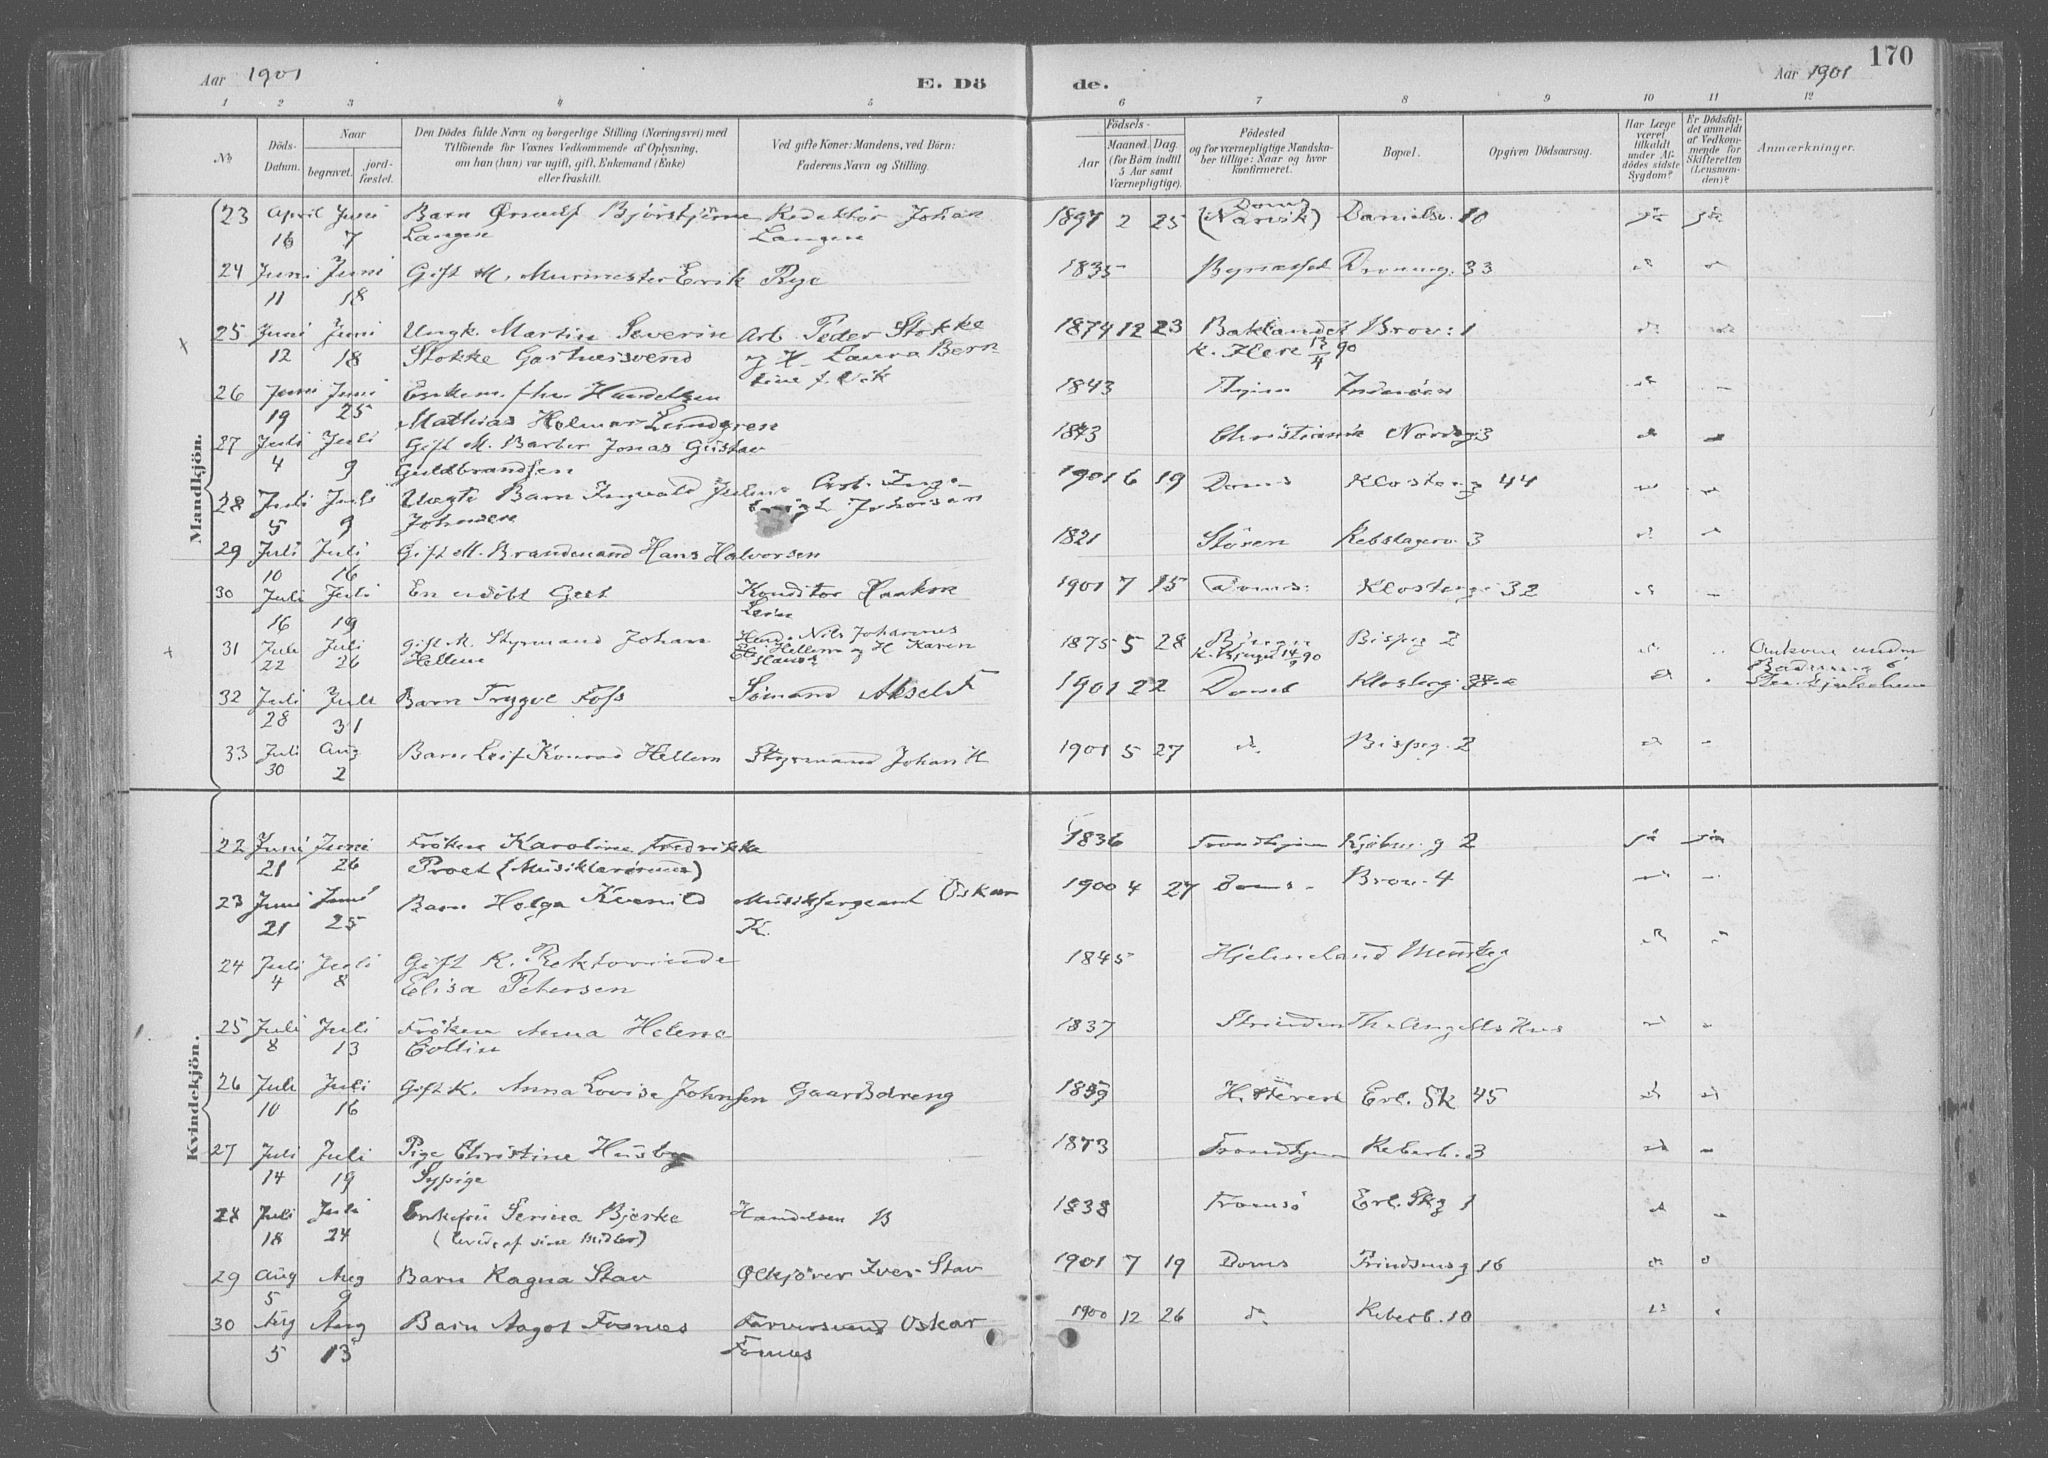 Aar 1901 E. Dö de. Aar 1901 170
1 2 3 4 5 6 7 8 9 10 11 12
No. Döds-Datum. Naar begravet. jord-fæstet. Den Dödes fulde Navn og borgerlige Stilling (Næringsvei) med Tilföiende for Voxnes Vedkommende af Oplysning, om han (hun) var ugift, gift, Enkemand (Enke) eller fraskilt. Ved gifte Koner: Mandens, ved Börn: Faderens Navn og Stilling. Födsels- Aar Maaned. Dag. (for Börn indtil 5 Aar samt Værnepligtige). Födested og for værnepligtige Mandskaber tillige: Naar og hvor konfirmeret. Bopæl. Opgiven Dödsaarsag. Har Læge været tilkaldt under Afdödes sidste Sygdom? Er Dödsfaldet anmeldt af Vedkommende for Skifteretten (Lensmanden)? Anmærkninger.
Mandkjön.
23 April Juni Barn Bjørstjerne Redaktør Johan 1897 2 25 Doms (Narvik) Danielsv. 10 ja ja
16 7 Langen Langen
24 Juni Juni Gift M. Murmester Erik Rye 1835 Bynæsset Dronning. 33
11 18
25 Juni Juni Ungk. Martin Severin Arb. Peder Stokke 1874 12 23 Baklandet Brov: 1
12 18 Stokke Garversvend og H Laura Bern- K. Here 13/4 90
tine f. Vik
26 Juni Juni Enkem. fhv. 1843 Indenöen
19 25 Mathias Helmer Lundgren
27 Juli Juli Gift M. Barber Jonas Gustav 1843 Christiania Nordreg. 3
4 9 Guldbrandsen
28 Juli Juli Uægte Barn Ingvald Julius Arb. Inge- 1901 6 19 Doms Klosterg 44
5 9 Johnsen brigt Johansen
29 Juli Juli Gift M. Brandmand Hans Halvorsen 1821 Stören Kebslagerv. 3
10 16
30 Juli Juli En udöbt Gut Konditor Haakon 1901 7 15 Doms: Klosterg: 32
16 19 Lein
31 Juli Juli Gift M. Styrmand Johan Nils Johannes 1875 5 28 Bjugn Bispeg 2 Ankom under
22 26 Hellem Hellem og H Karen K. Bjugn 14/9 90 Badning i
Hansd
32 Juli Juli Barn Trygve Foss Sömand Aksel F 1901 2 2 Doms Klosterg:
28 31
33 Juli Aug Barn Leif Konrad Hellem Styrmand Johan H 1901 5 27 do Bispeg. 2
30 2
Kvindekjön.
22 Juni Juni Fröken Karoline Fredrikke 1836 Trondhjem Kjöbm. g 2 ja ja
21 26 Proet (Musiklærerinde)
23 Juni Juni Barn Helga Kvenild Musiksergeant Oskar 1900 4 27 Doms. Brov. 4
21 25 K.
24 Juli Juli Gift K. Rektorinde 1845 Hjelmeland Munkeg
4 8 Elisa Petersen
25 Juli Juli Fröken Anna Helene 1837 Strinden Th. Angells Hus
8 13 Collin
26 Juli Juli Gift K. Anna Lovise Johnsen Gaardsdreng 1859 Hitteren Erl. Sk 45
10 16
27 Juli Juli Pige Christine Husby 1873 Trondhjem Keberb. 3
14 19 Sypige
28 Juli Juli Enkefru Serina Bjerke Handelsm B 1838 Tromsö Erl. Skg 1
18 24 (levede af sine Midler)
29 Aug Aug Barn Ragna Stav Ölkjörer Iver Stav 1901 7 19 Doms Prindsensg 16
5 9
30 Aug Aug Barn Aagot Fosnes Farversvend Oskar 1900 12 26 do Keberb. 10
5 13 Fosnes